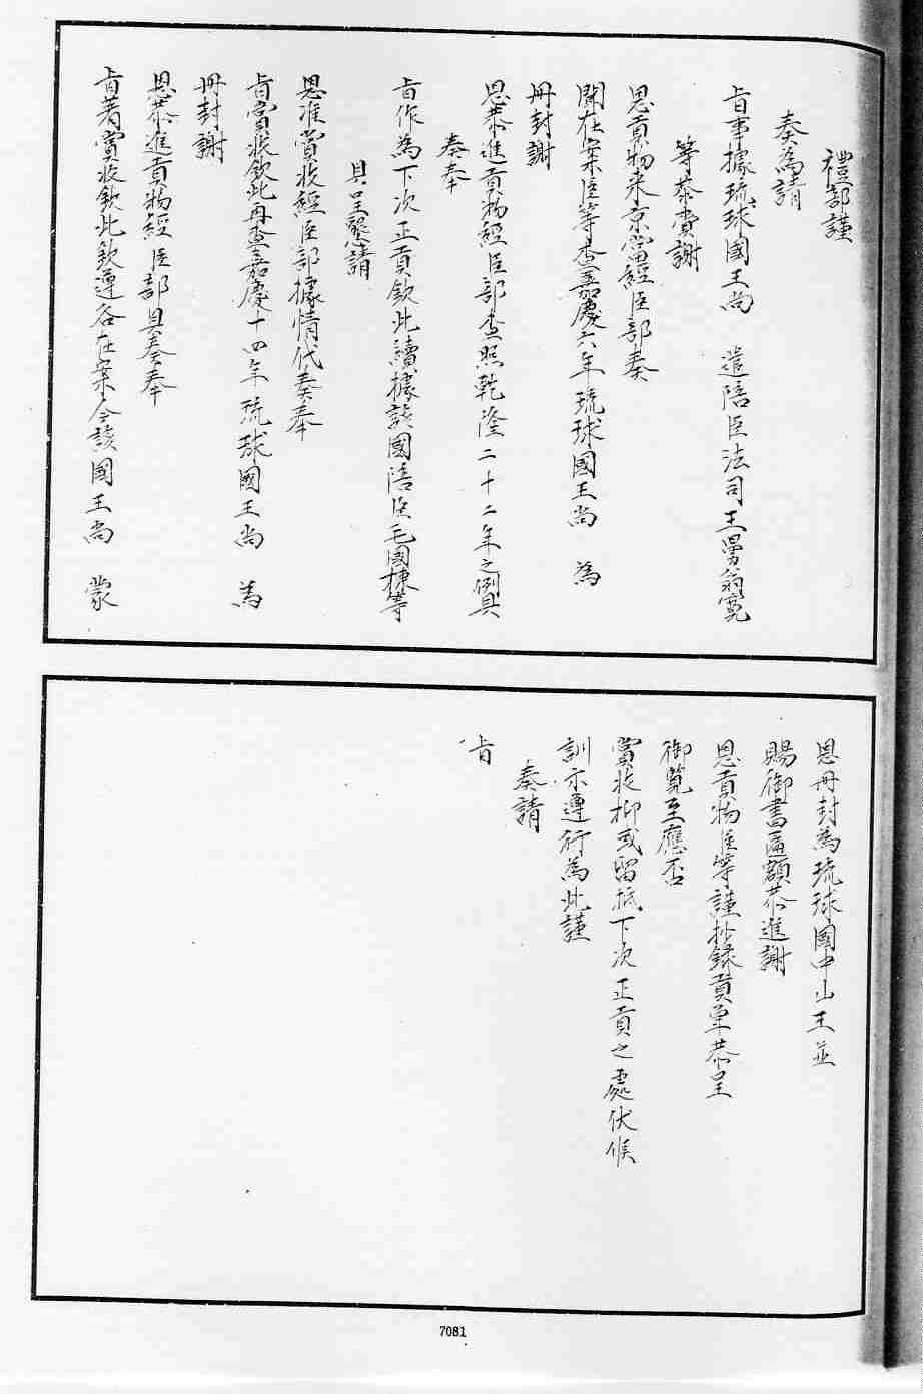 禮部謹
奏為請
旨事據琉球國王尚 遣陪臣法司王舅翁寬
等恭賫謝
恩貢物来京當經臣部奏
聞在案臣等查嘉慶六年琉球國王尚 為
冊封謝
恩恭進貢物經臣部查照乾隆二十二年之例具
奏奉
旨作為下次正貢欽此續據該國陪臣毛國棟等
具呈懇請
恩准賞收經臣部據情代奏奉
旨賞收欽此再查嘉慶十四年琉球國王尚 為
冊封謝
恩恭進貢物經臣部具奏奉
旨著賞收欽此欽遵各在案今該國王尚 蒙
恩冊封為琉球國中山王並
賜御書匾額恭進謝
恩貢物臣等謹抄錄貢單恭呈
御覧至應否
賞收抑或留抵下次正貢之處伏候
訓示遵行為此謹
奏請
旨
7081